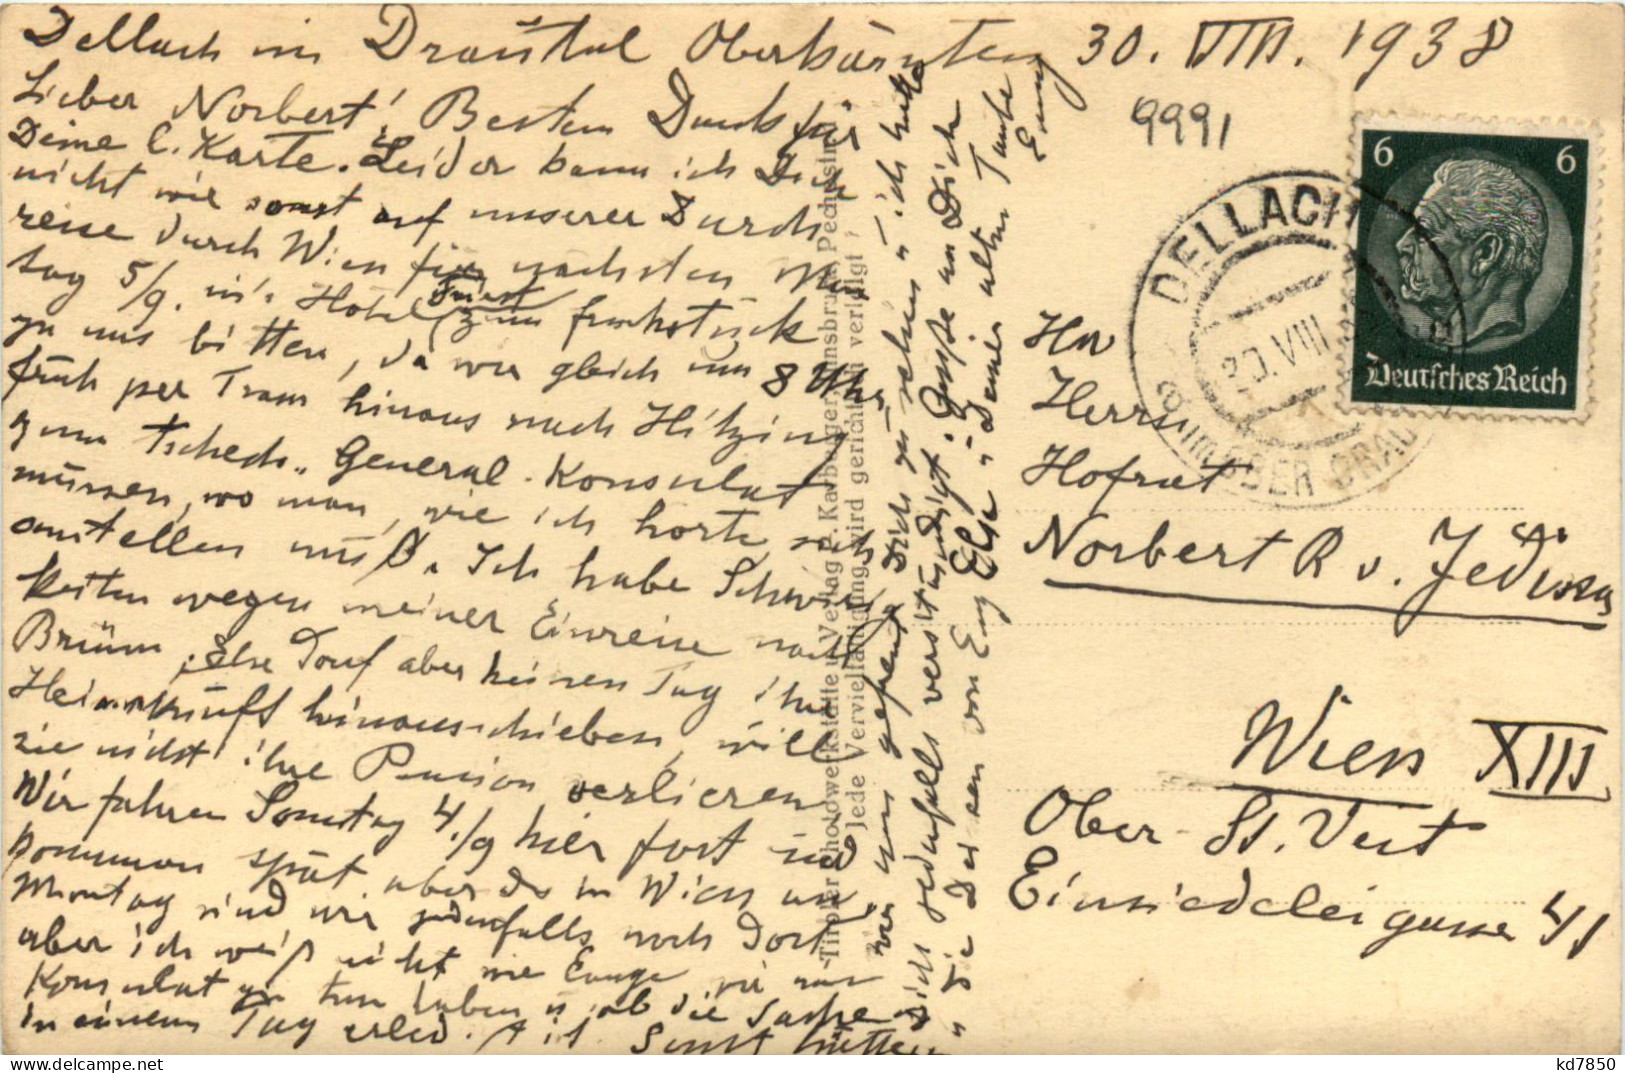 Dellach im Drautal Oberkärnten 30. VIII. 1938
Lieber Norbert! Besten Dank für
Deine l. Karte. Leider kann ich Dich
nicht wie sonst auf unserer Durch
reise durch Wien für nächsten Mon
tag 5/9. in's Hotel (zum Frühstück
zu uns bitten, da wir gleich um 8 Uhr
früh per Tram hinaus nach Hitzing
zum tschech. General-Konsulat
müssen, wo man, wie ich hörte, sich
anstellen muß. Ich habe Schwierig
keiten wegen meiner Einreise nach
Brünn, Else darf aber keinen Tag ihre
Heimkunft hinausschieben, will
sie nicht ihre Pension verlieren
Wir fahren Sonntag 4./9 hier fort und
kommen spät aber da in Wien an.
Montag sind wir jedenfalls noch dort
aber ich weiß nicht wie lange wir am
Konsulat zu tun haben u. ob die Sache
in einem Tag erled. ist. Sonst hätten
wir uns gefreut Dich zu sehen u. ich hätte
Dich jedenfalls verständigt. Grüsse an Dich
u. die Deinen von Euy Else u. Deiner alten Tante
Emmy
9991
6 6
Deutsches Reich
DELLACH
30.VIII
OBER DRAU
Herrn
Hofrat
Norbert R v. Jedina
Wien XIII
Ober-St. Veit
Einsiedeleigasse 4/1
Tiroler Photowerkstätte u. Verlag R. Kalbunger, Innsbruck, Pechestraße
Jede Vervielfältigung wird gerichtlich verfolgt!
kd7850